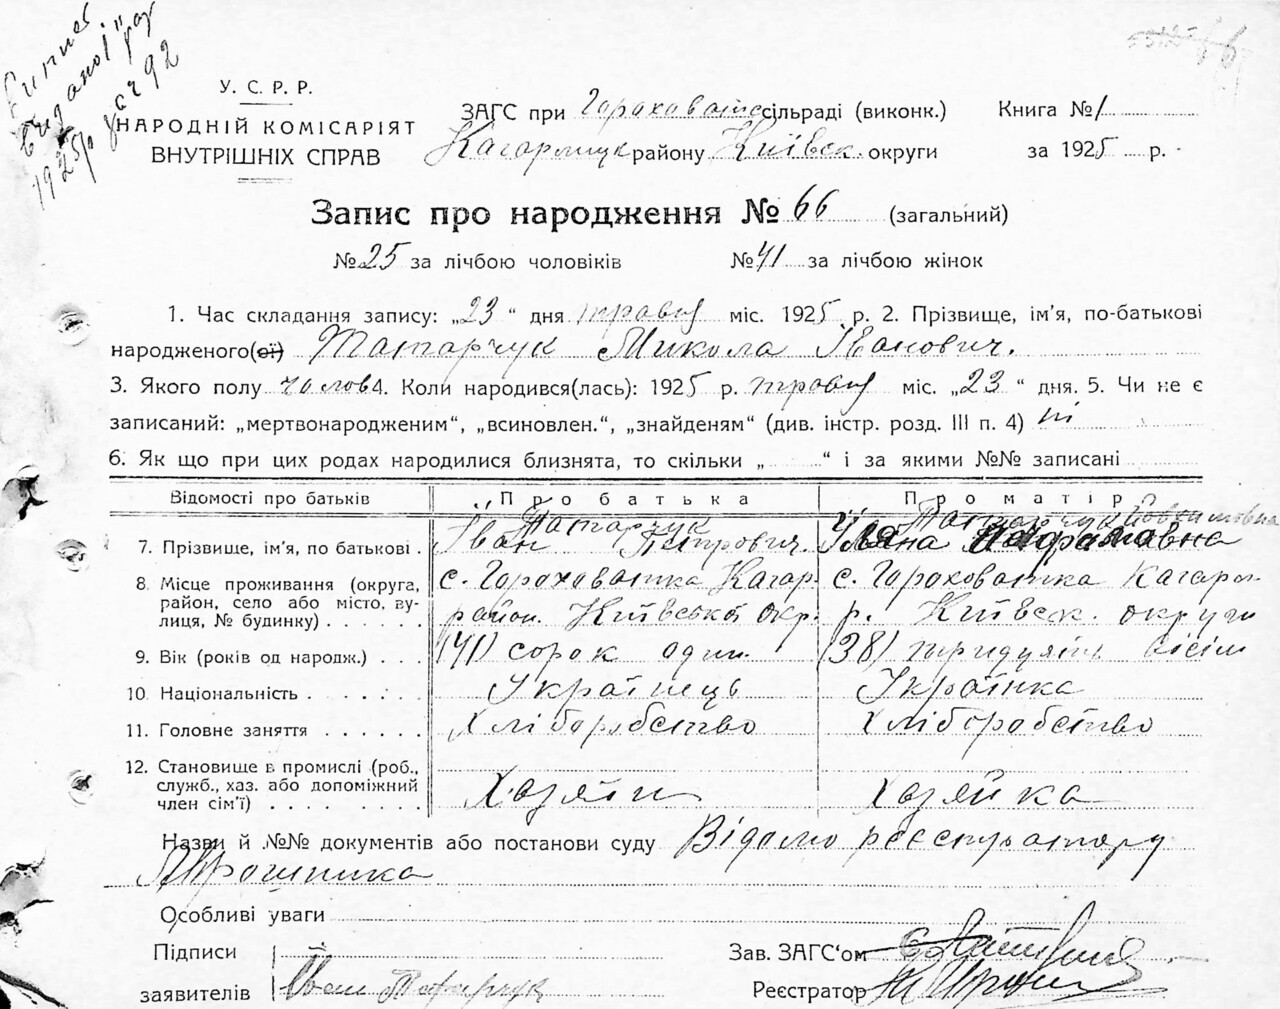 У. С. Р. Р.
НАРОДНІЙ КОМІСАРІЯТ
ВНУТРІШНІХ СПРАВ
ЗАГС при Гороховатс сільраді (виконк.)
Кагарлицк району Київск. округи
Книга № 1
за 1925 р.
Запис про народження № 66 (загальний)
№ 25 за лічбою чоловіків № 41 за лічбою жінок
1. Час складання запису: „23“ дня травня міс. 1925 р. 2. Прізвище, ім’я, по-батькові
народженого(ої) Татарчук Микола Іванович.
3. Якого полу чолов 4. Коли народився(лась): 1925 р. травня міс. „23“ дня. 5. Чи не є
записаний: „мертвонародженим“, „всиновлен.“, „знайденям“ (див. інстр. розд. III п. 4) ні
6. Як що при цих родах народилися близнята, то скільки „ “ і за якими №№ записані
Відомості про батьків Про батька Про матір
7. Прізвище, ім’я, по батькові . Татарчук Іван Петрович. Татарчук Уляна
8. Місце проживання (округа, район, село або місто, вулиця, № будинку) . . . . . .
с. Гороховатка Кагар. район. Київської окр.
с. Гороховатка Кагарл. р. Київск. округи
9. Вік (років од народж.) . . . (41) сорок один (38) тридцять вісім
10. Національність . . . . . . Українець Українка
11. Головне заняття . . . . . . Хліборобство Хліборобство
12. Становище в промислі (роб., служб., хаз. або допоміжний член сім’ї) . . . . . . . . Хазяїн Хазяйка
Назви й №№ документів або постанови суду Відомо реєстратору
Мірошника
Особливі уваги
Підписи
заявителів Іван Татарчук
Зав. ЗАГС‘ом
Реєстратор